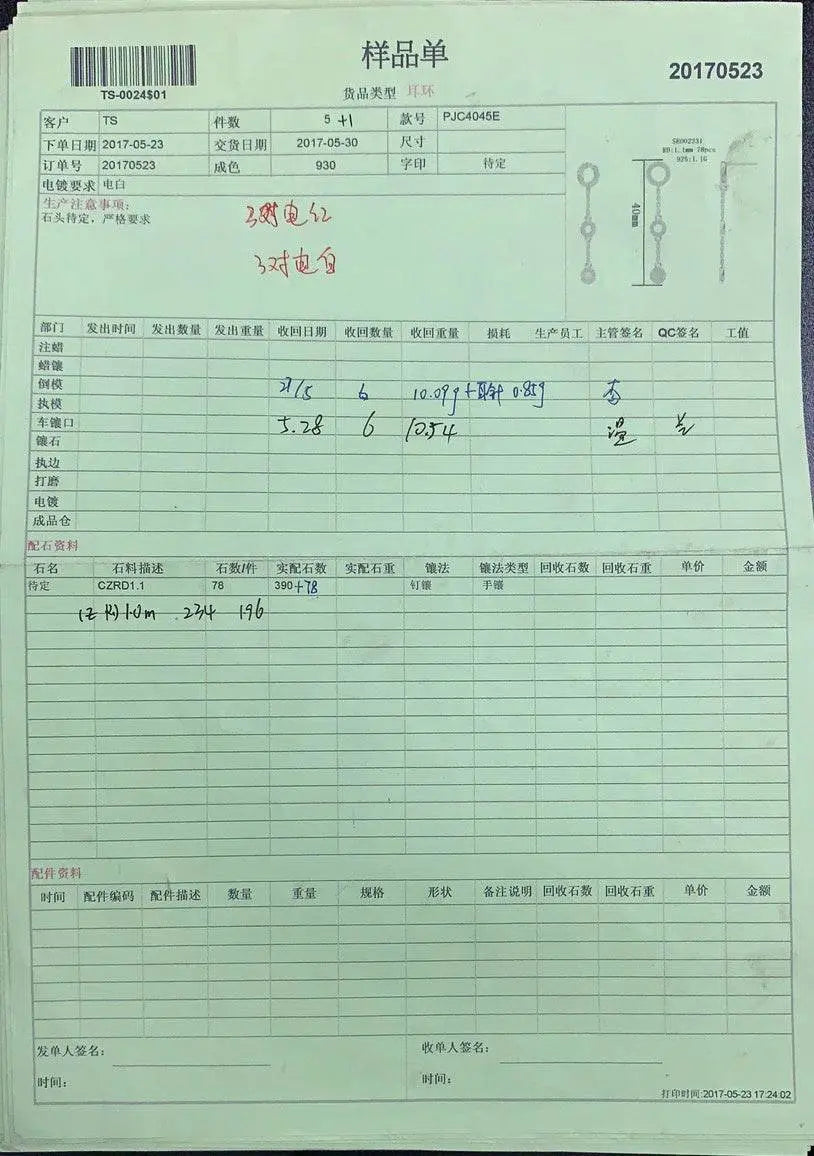 样品单
TS-0024$01
20170523
货品类型 耳环
客户 TS 件数 5 +1 款号 PJC4045E
下单日期 2017-05-23 交货日期 2017-05-30 尺寸
订单号 20170523 成色 930 字印 待定
电镀要求 电白
生产注意事项:
石头待定，严格要求
3对电红
3对电白
SR902231
RD:1.1mm 78pcs
925:1.1G
40mm
部门 发出时间 发出数量 发出重量 收回日期 收回数量 收回重量 损耗 生产员工 主管签名 QC签名 工值
注蜡
蜡镶
倒模 27/5 6 10.09g+耳针 0.85g
执模
车镶口 5.28 6 10.54
镶石
执边
打磨
电镀
成品仓
配石资料
石名 石料描述 石数/件 实配石数 实配石重 镶法 镶法类型 回收石数 回收石重 单价 金额
待定 CZRD1.1 78 390+78 钉镶 手镶
1.0m 234 196
配件资料
时间 配件编码 配件描述 数量 重量 规格 形状 备注说明 回收石数 回收石重 单价 金额
发单人签名: 收单人签名:
时间: 时间:
打印时间:2017-05-23 17:24:02